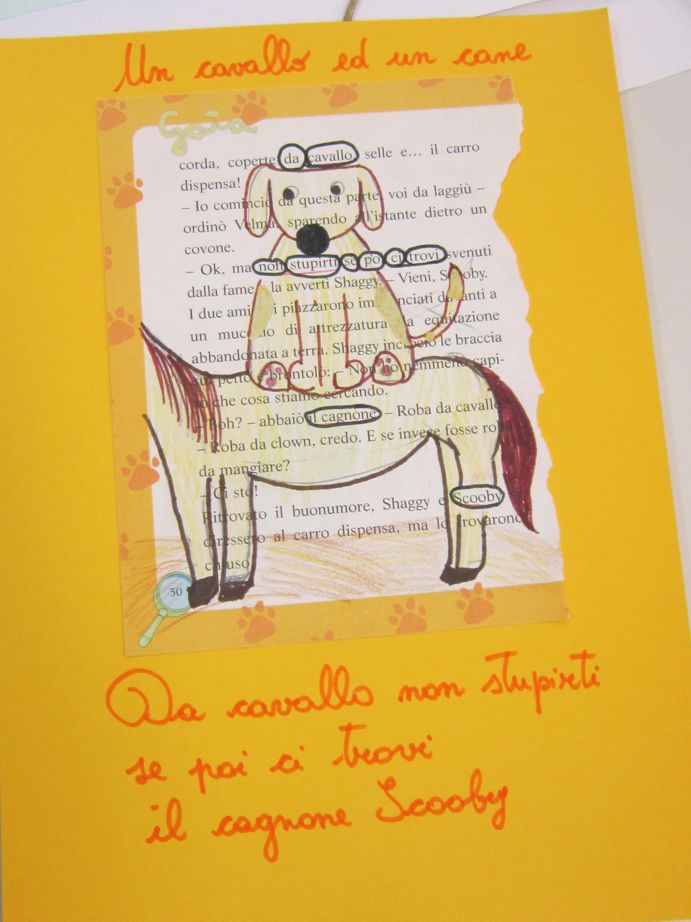 Un cavallo ed un cane
Gaia
corda, coperte da cavallo selle e... il carro
dispensa!
– Io comincio da questa parte, voi da laggiù –
ordinò Velma, sparendo all'istante dietro un
covone.
– Ok, ma non stupirti se poi ci trovi svenuti
dalla fame – la avvertì Shaggy. – Vieni, Scooby.
I due amici si piazzarono davanti a
un mucchio di attrezzatura da equitazione
abbandonata a terra. Shaggy incrociò le braccia
sul petto e brontolò: – Non ho nemmeno capi-
to che cosa stiamo cercando.
– Boh? – abbaiò il cagnone. – Roba da cavallo
– Roba da clown, credo. E se invece fosse roba
da mangiare?
– Ci sto!
Ritrovato il buonumore, Shaggy e Scooby
si diressero al carro dispensa, ma lo trovarono
chiuso
50
Da cavallo non stupirti
se poi ci trovi
il cagnone Scooby